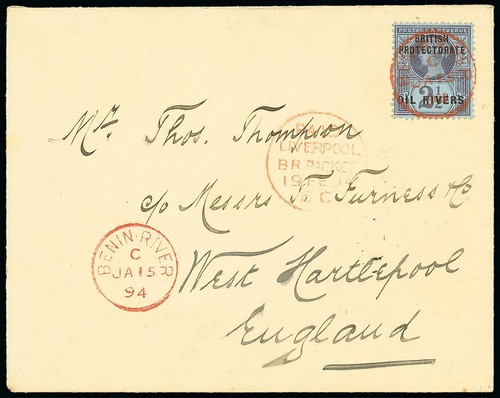 POSTAGE & REVENUE
BRITISH
PROTECTORATE
OIL RIVERS
2½
Mr. Thos. Thompson
PAID
LIVERPOOL
BR. PACKET
19 FE 94
C
c/o Messrs Furness & Co
BENIN·RIVER
C
JA 15
94
West Hartlepool
England